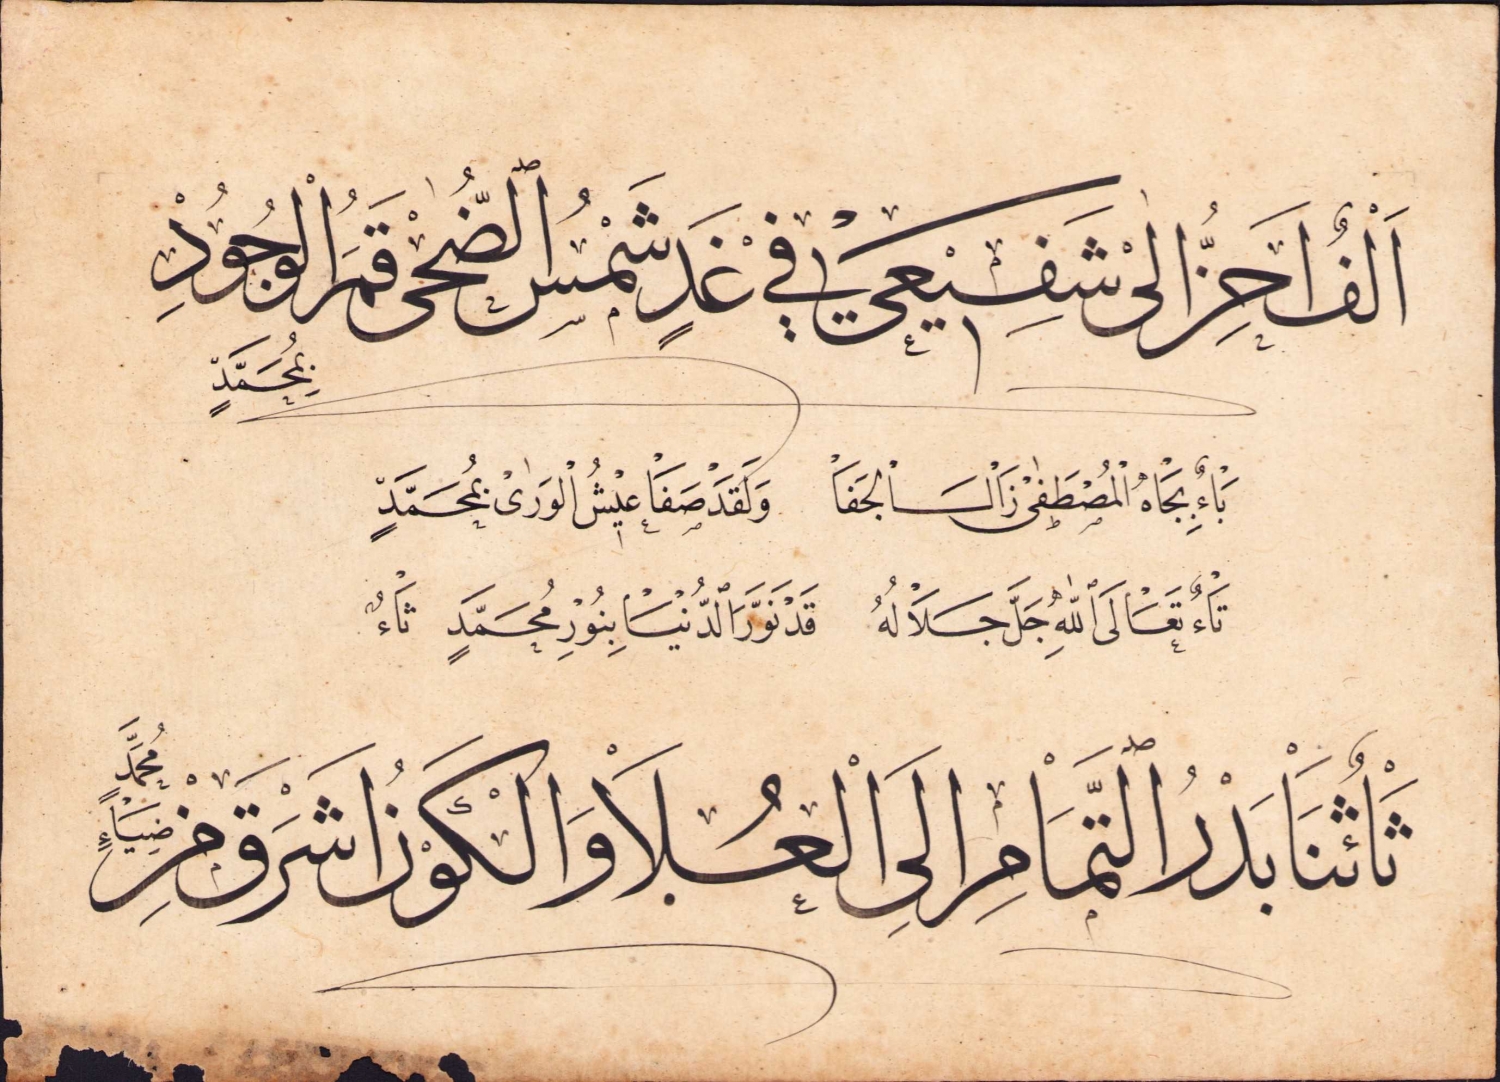 اَلْفٌ اَحِزُّ الٰى شَفِيعِيَ فِي غَدٍ شَمْسُ الضُّحٰى قَمَرُ الْوُجُودِ
بِمُحَمَّدٍ
بَاءٌ بِجَاهِ الْمُصْطَفٰى زَالَ الْجَفَا وَلَقَدْ صَفَا عَيْشُ الْوَرٰى بِمُحَمَّدٍ
تَاءٌ تَعَالَى اللّٰهُ جَلَّ جَلَالُهُ قَدْ نَوَّرَ الدُّنْيَا بِنُوْرِ مُحَمَّدٍ ثَاءٌ
ثَاءٌ ثَنَا بَدْرُ التَّمَامِ اِلَى الْعُلَا وَالْكَوْنُ اَشْرَقَ مِنْ
ضِيَاءِ مُحَمَّدٍ